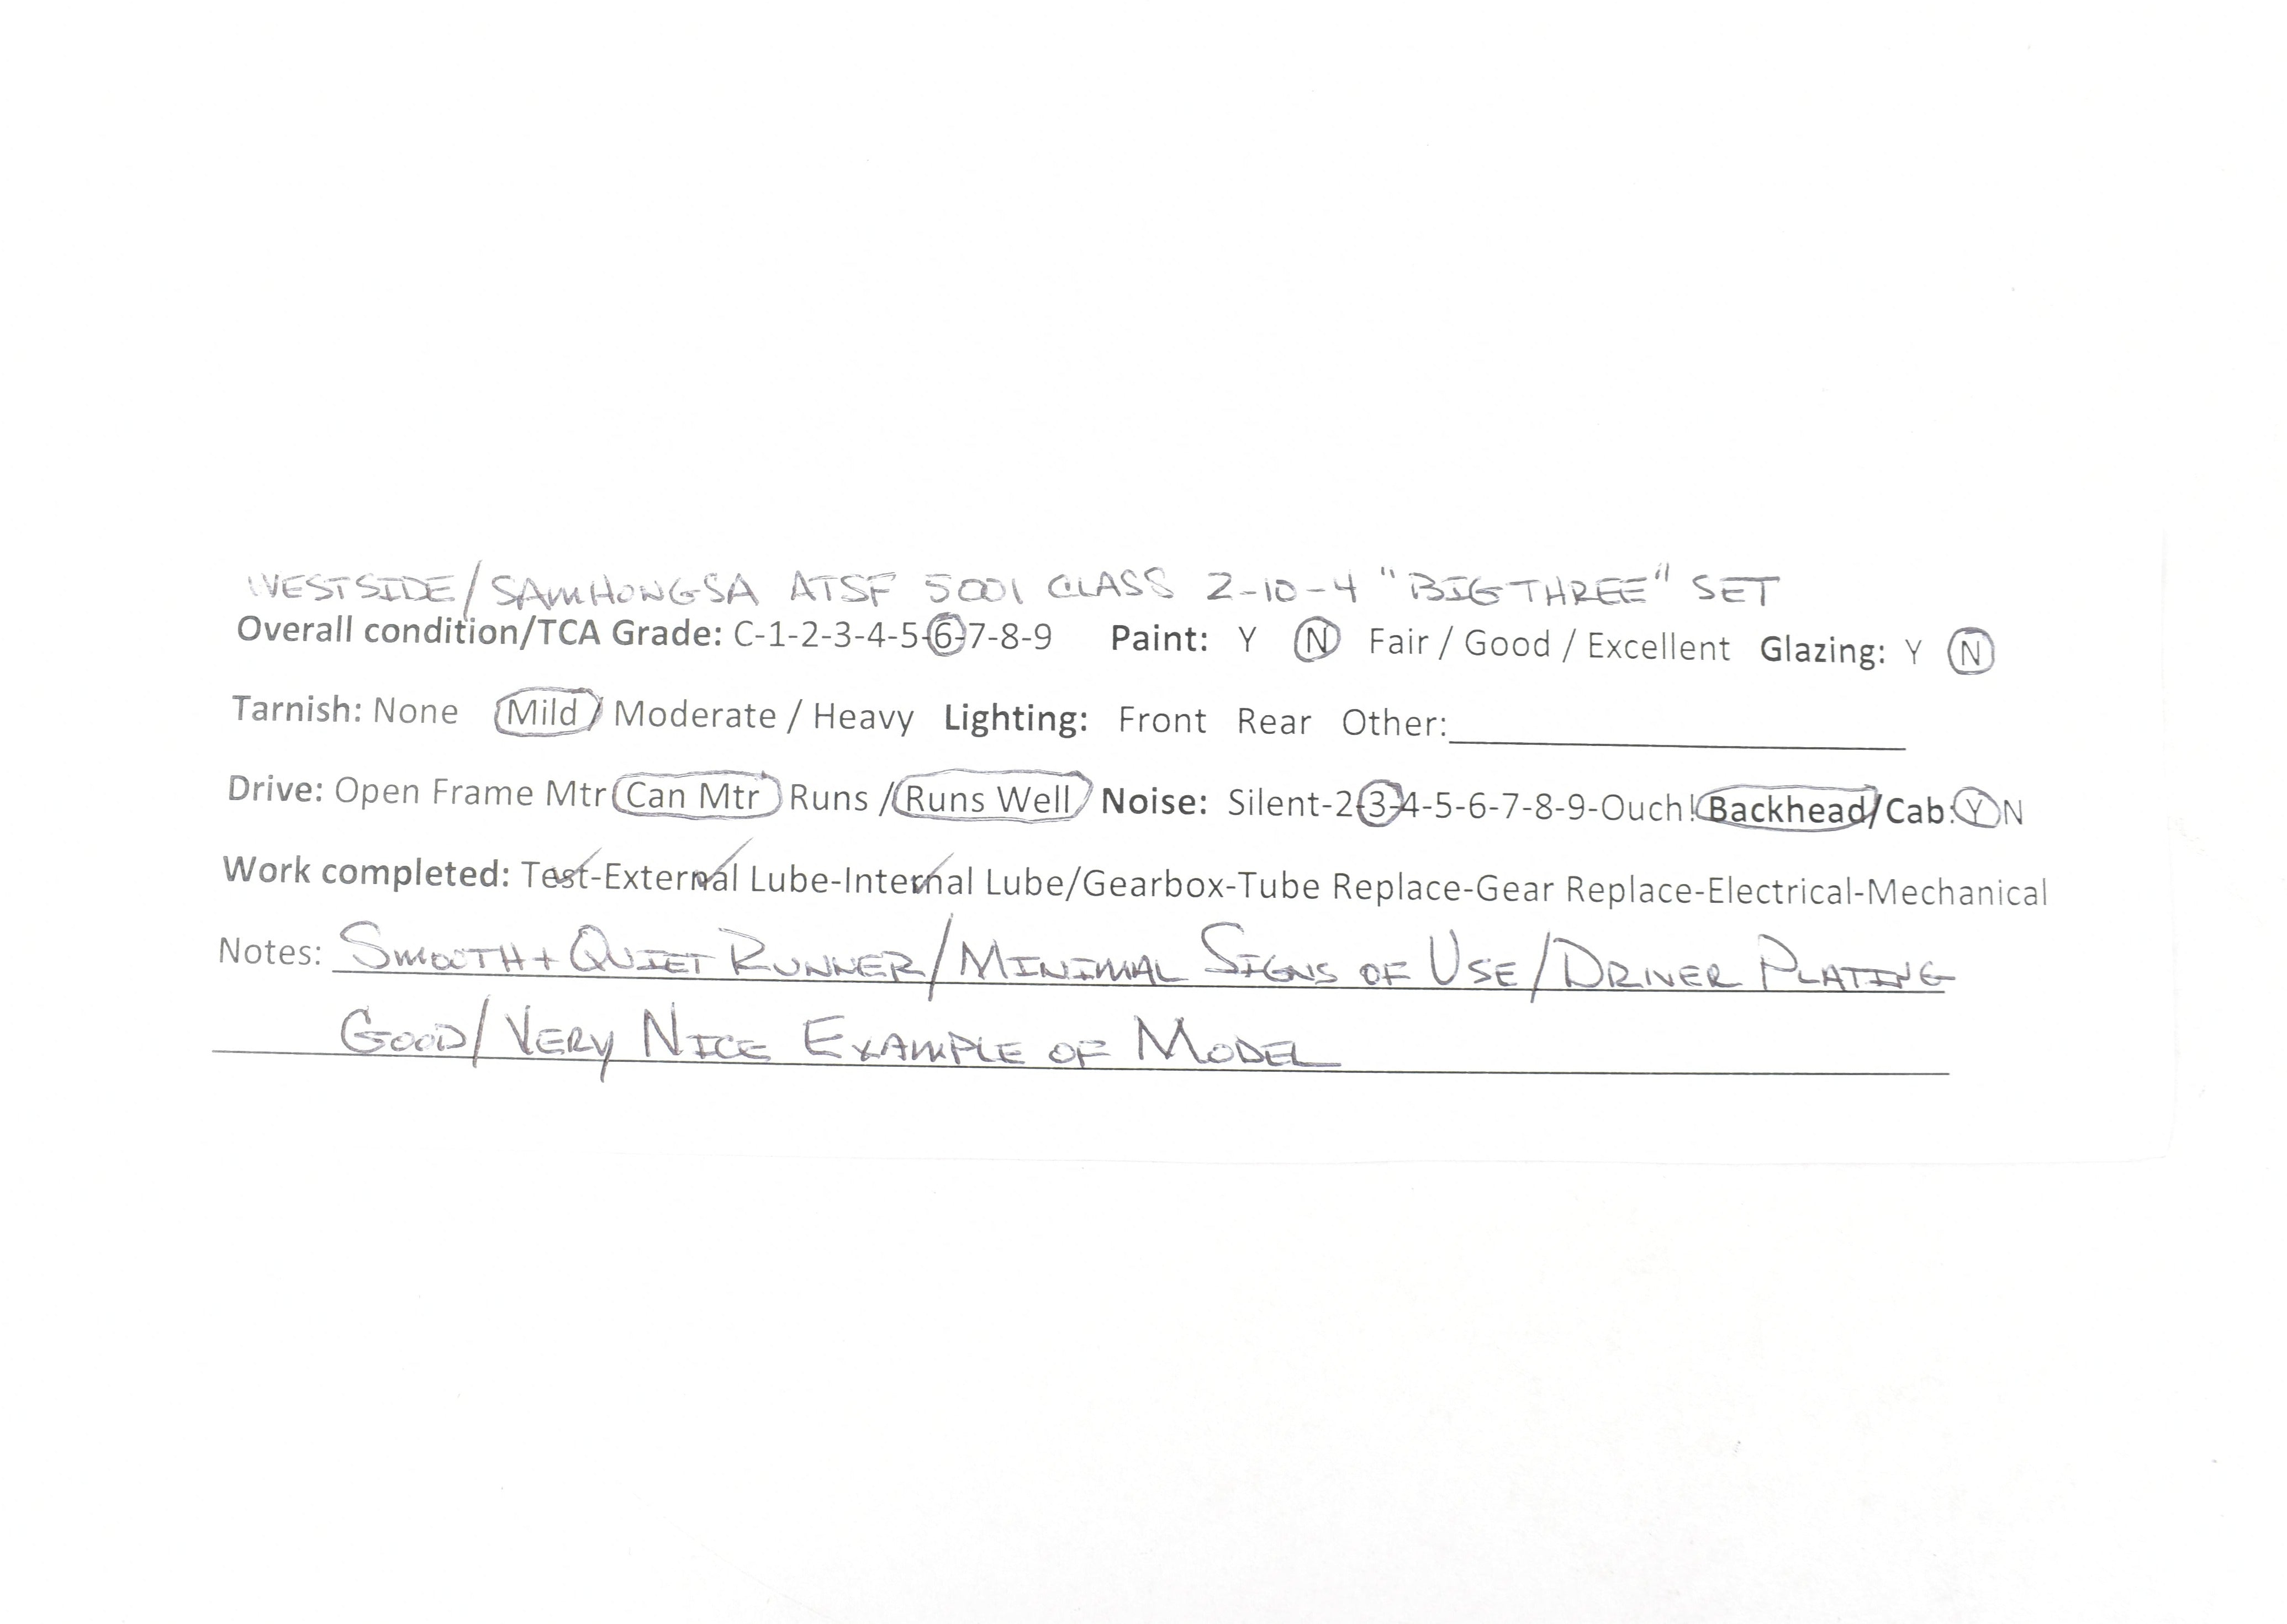 WESTSIDE/SAMHONGSA ATSF 5001 CLASS 2-10-4 "BIG THREE" SET
Overall condition/TCA Grade: C-1-2-3-4-5-6-7-8-9 Paint: Y N Fair / Good / Excellent Glazing: Y N
Tarnish: None Mild / Moderate / Heavy Lighting: Front Rear Other:
Drive: Open Frame Mtr Can Mtr Runs / Runs Well Noise: Silent-2-3-4-5-6-7-8-9-Ouch! Backhead/Cab: Y N
Work completed: Test-External Lube-Internal Lube/Gearbox-Tube Replace-Gear Replace-Electrical-Mechanical
Notes: SMOOTH + QUIET RUNNER/MINIMAL SIGNS OF USE/DRIVER PLATING
GOOD/VERY NICE EXAMPLE OF MODEL